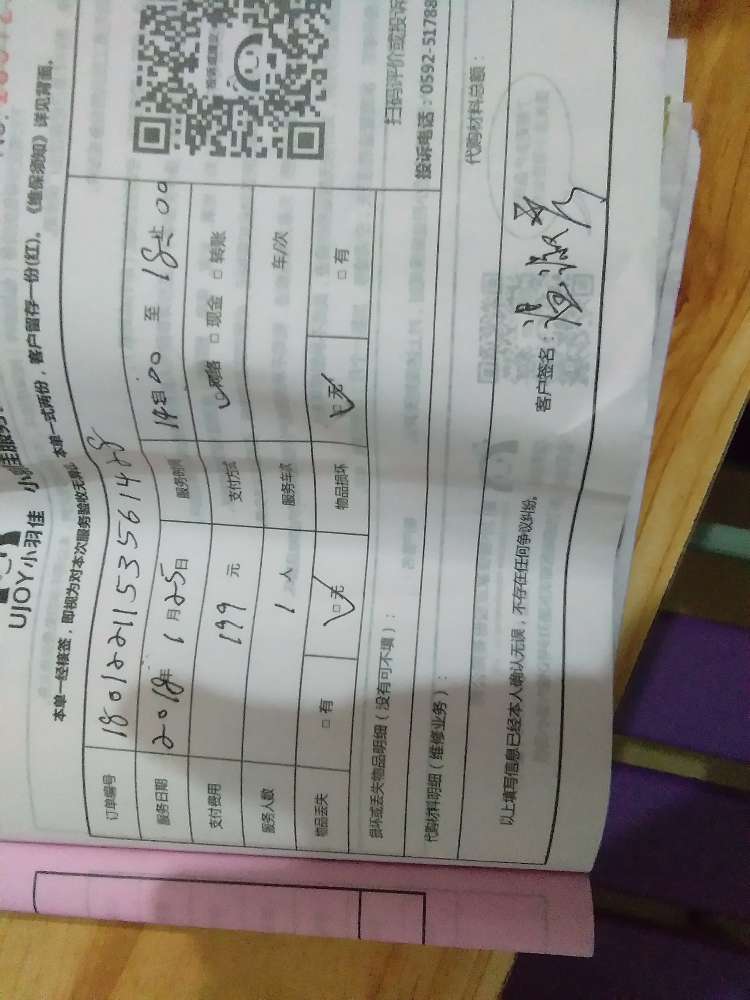 UJOY小羽佳
本单一式两份，客户留存一份(红)。《维保须知》详见背面。
本单一经核签，即视为对本次服务验收无异
订单编号 180122115356142
服务日期 2018年 1月25日 服务时间 14:00 至 18:00
支付费用 199 元 支付方式 网络 □ 现金 □ 转账
服务人数 1 人 服务车次 车/次
物品丢失 □ 有 □ 无 物品损坏 □ 无 □ 有
损坏或丢失物品明细（没有可不填）：
扫码评价或投诉
投诉电话：0592-51788
代购材料明细（维修业务）： 代购材料总额：
以上填写信息已经本人确认无误，不存在任何争议纠纷。
客户签名：